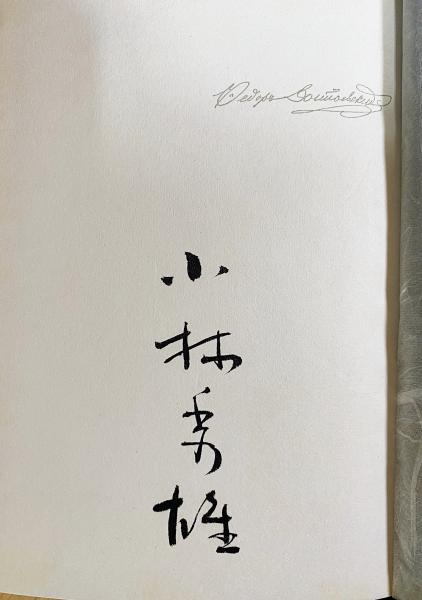 Ѳедоръ Достоевскій
小林秀雄